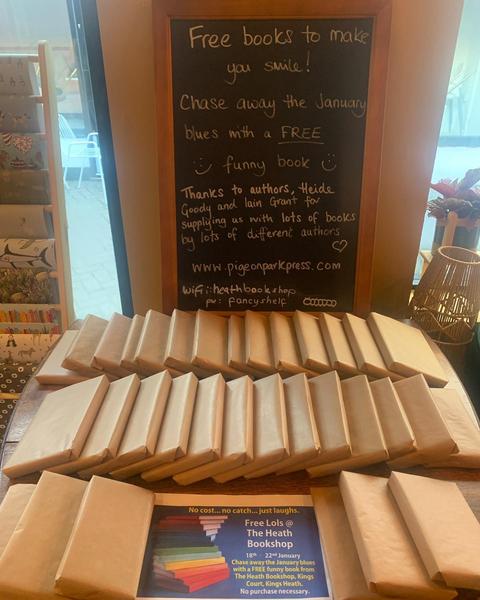 Free books to make
you smile!
Chase away the January
blues with a FREE
funny book
Thanks to authors, Heide
Goody and Iain Grant for
supplying us with lots of books
by lots of different authors
www.pigeonparkpress.com
wifi: heathbookshop
pw: fancyshelf
No cost... no catch... just laughs.
Free Lols @
The Heath
Bookshop
18th - 22nd January
Chase away the January blues
with a FREE funny book from
The Heath Bookshop, Kings
Court, Kings Heath.
No purchase necessary.